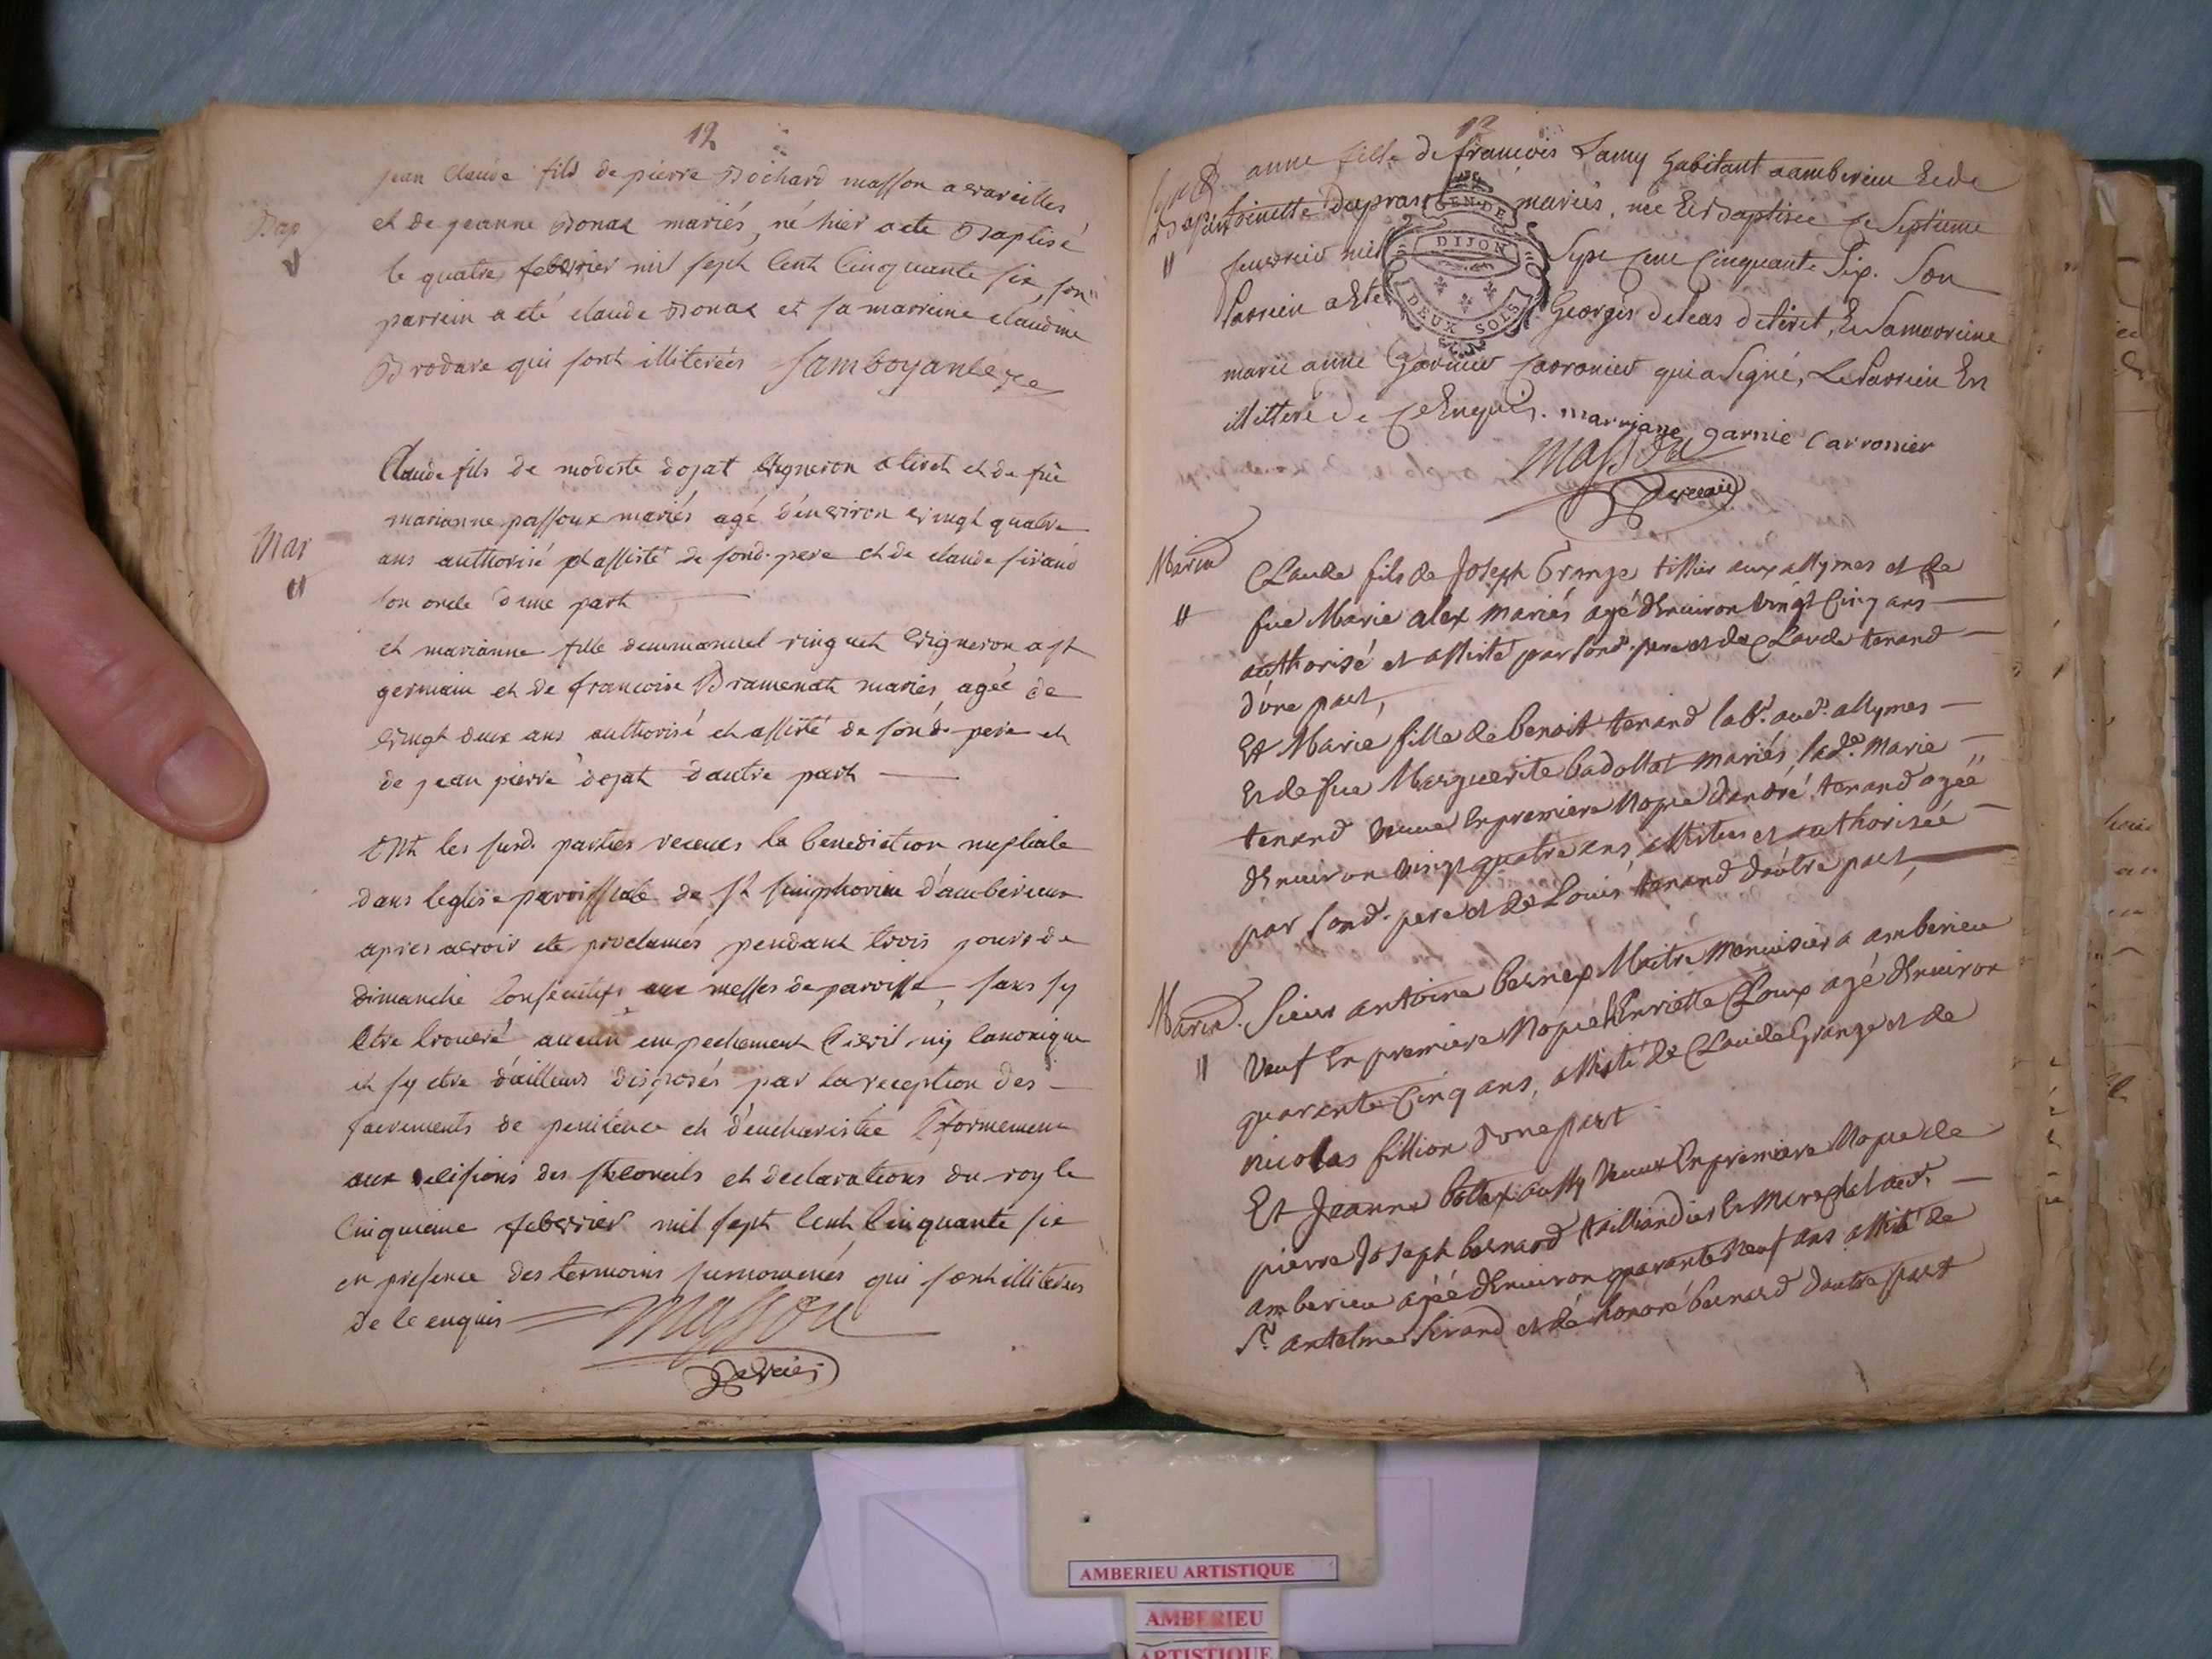 12
jean Claude fils de pierre Bochard masson a vareilles
Bap
et de jeanne Bonaz mariés, né hier a ete Baptisé
le quatre febvrier mil sept Cent Cinquante six, son
parrein a eté claude Bonaz et sa marreine claudine
Brodare qui sont illiterées
Claude fils de modeste dojat vigneron a tiret et de füe
marianne passoux mariés agé d'environ vingt quatre
Mar
ans authorisé et assisté de sond. pere et de claude sirand
son oncle d'une part
et marianne fille demmanuel ringuet vigneron a st
germain et de francoise Bramenat mariés, agée de
vingt deux ans authorisé et assisté de sond. pere et
de jean pierre dojat dautre part
ont les susd. parties receues la benediction nuptiale
dans leglise paroissiale de st simphorien d'amberieux
apres avoir eté proclamés pendant trois jours de
dimanche Consecutifs aux messes de paroisse, sans sy
etre trouvé aucun empechement Civil, ny Canonique
et sy etre d'ailleurs disposés par la reception des
sacrements de penitence et d'eucharistie
aux des st conciles et declarations du roy le
Cinquieme febvrier mil sept Cent Cinquante six
en presence des temoins surnommés qui sont illiteres
de ce enquis Masson
13
anne fille de francois Lamy habitant a amberieu Et de
mariés, née Et Baptisée ce Septieme
GEN. DE
DIJON
DEUX SOLS
Sept Cent Cinquante Six. Son
Parrein a Eté Georges deleas de tiret, Et Sa marreine
marie anne Garnier Carronier qui a Signé, Le Parrein En
illitteré de Ce Enquis. marriane garnie Carronier
Masson
Claude fils de Joseph Grange tissier aux allymes et de
fue Marie alex mariés agé d'Environ vingt Cinq ans
authorisé et assisté par sond. pere et de Claude tenand
d'une part,
Et Marie fille de benoit tenand labr. aud. allymes
Et de fue Marguerite badollat mariés, lade. Marie
tenand veuve En premiere Nopce d'andré tenand agéé
d'Environ vingt quatre ans, assistée et authorisée
par sond. pere et de Louis tenand d'autre part,
Sieur antoine bernex Maitre Menuisier a amberieu
veuf En premiere Nopce d'Enriette Cloux agé d'Environ
quarante Cinq ans, assisté de Claude Grange et de
nicolas fillion d'une part
Et Jeanne bottex aussy veuve En premiere Nopce de
pierre Joseph bernard taillandier Et Marechal aud.
amberieu agéé d'Environ quarante Neuf ans assisté de
Sr. antelme Sirand et de honoré bernard d'autre part
AMBERIEU ARTISTIQUE
AMBERIEU
ARTISTIQUE